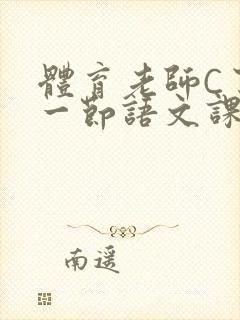 體育老師C
一節語文課
南遥